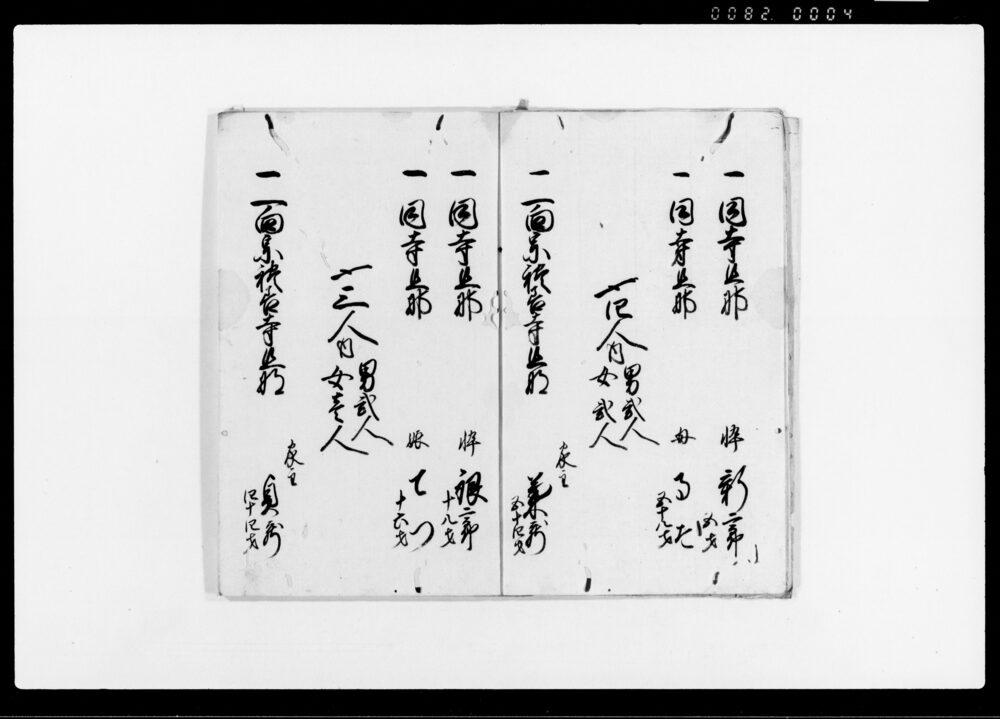 0082.0004
一同寺旦那
忰
新二郎
五才
一同寺旦那
母
五十八才
〆四人内
男弐人
女弐人
一一向宗
寺旦那
家主
五十四才
一同寺旦那
忰
銀二郎
十八才
一同寺旦那
娘
てつ
十六才
〆三人内
男弐人
女壱人
一一向宗
寺旦那
家主
四十四才